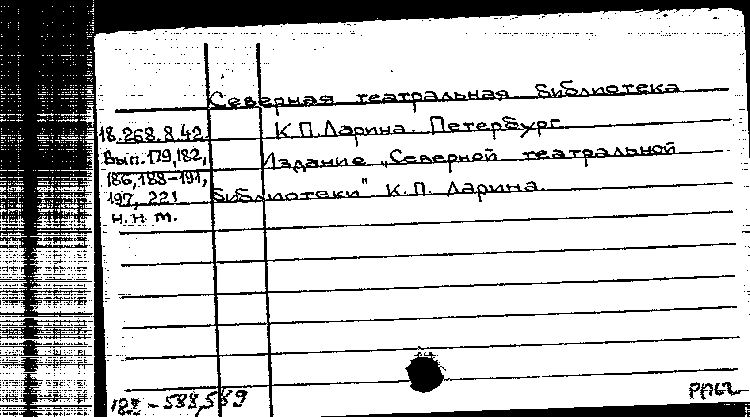 Северная театральная библиотека
18.268.8.42 К.П. Ларина. Петербург.
Вып. 179, 182, Издание „Северной театральной
186, 188-191,
197, 221 библиотеки" К.П. Ларина.
н. н. т.
122 - 588,589